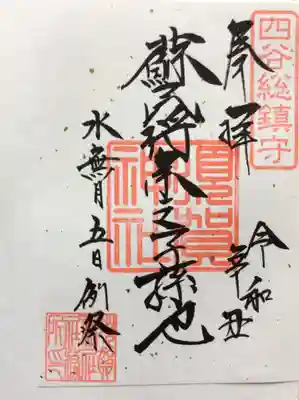 四谷総鎮守
奉拝
令和辛丑
蘇民将来之子孫也
須賀神社
水無月五日例祭